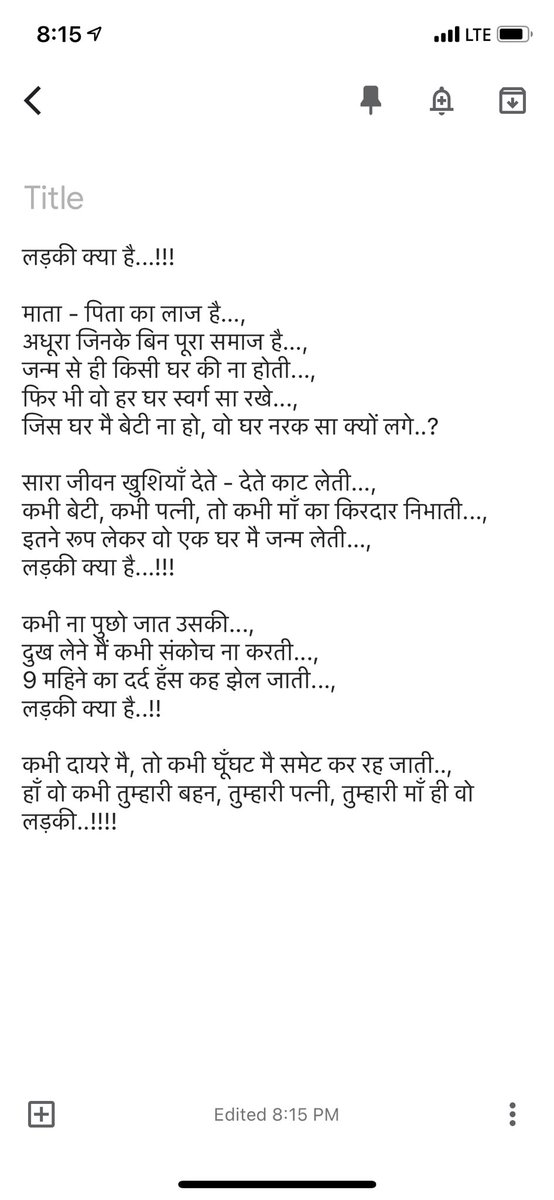 8:15
LTE
Title
लड़की क्या है...!!!
माता - पिता का लाज है...,
अधूरा जिनके बिन पूरा समाज है...,
जन्म से ही किसी घर की ना होती...,
फिर भी वो हर घर स्वर्ग सा रखे...,
जिस घर मै बेटी ना हो, वो घर नरक सा क्यों लगे..?
सारा जीवन खुशियाँ देते - देते काट लेती...,
कभी बेटी, कभी पत्नी, तो कभी माँ का किरदार निभाती...,
इतने रूप लेकर वो एक घर मै जन्म लेती...,
लड़की क्या है...!!!
कभी ना पुछो जात उसकी...,
दुख लेने मैं कभी संकोच ना करती...,
9 महिने का दर्द हँस कह झेल जाती...,
लड़की क्या है..!!
कभी दायरे मै, तो कभी घूँघट मै समेट कर रह जाती..,
हाँ वो कभी तुम्हारी बहन, तुम्हारी पत्नी, तुम्हारी माँ ही वो
लड़की..!!!!
Edited 8:15 PM